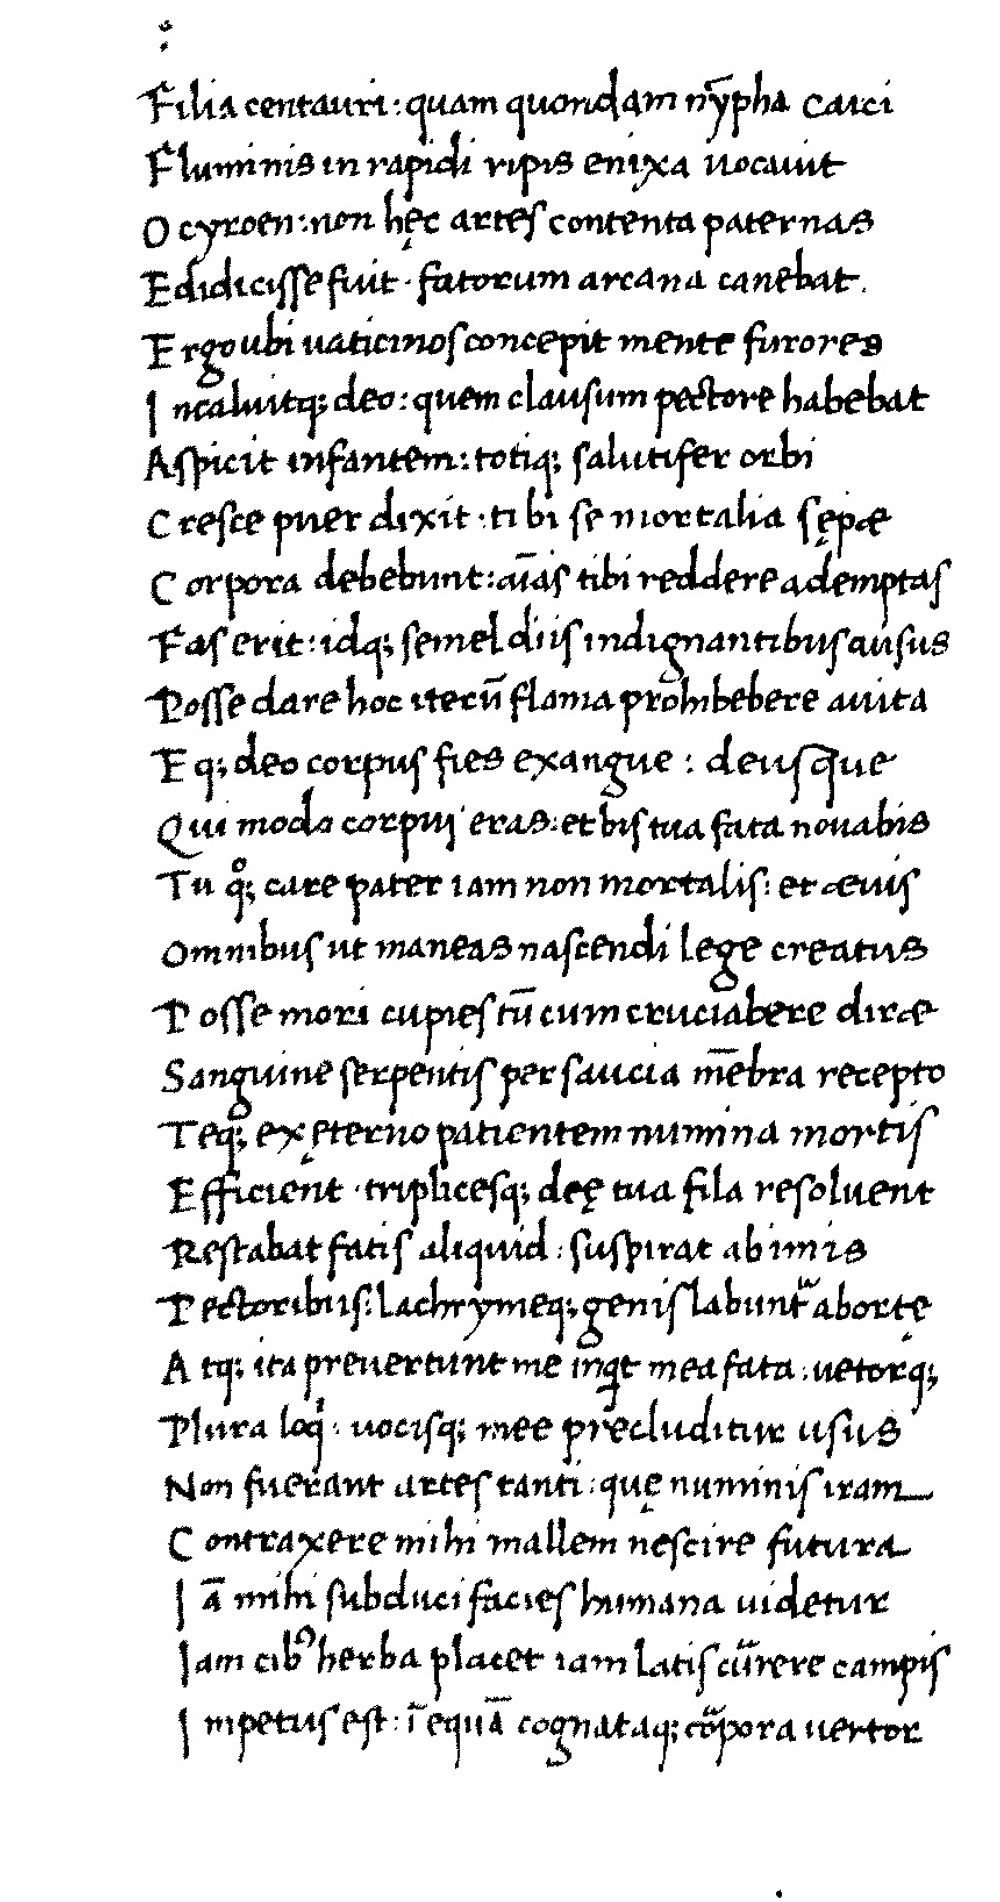 Filia centauri: quam quondam nȳpha Caici
Fluminis in rapidi ripis enixa uocauit
Ocyroen: non hęc artes contenta paternas
Edidicisse fuit · fatorum arcana canebat.
Ergo ubi uaticinos concepit mente furores
Incaluitq; deo: quem clausum pectore habebat
Aspicit infantem: totiq; salutifer orbi
Cresce puer dixit · tibi se mortalia sępæ
Corpora debebunt: aīas tibi reddere ademptas
Fas erit: idq; semel diis indignantibus ausus
Posse dare hoc iterū flama prohibebere auita
Eq; deo corpus fies exangue : deusque
Qui modo corpus eras: et bis tua fata nouabis
Tu qͦ; care pater iam non mortalis: et æuis
Omnibus ut maneas nascendi lege creatus
Posse mori cupies tū cum cruciabere diræ
Sanguine serpentis per saucia mēbra recepto
Teq; ex ęterno patientem numina mortis
Efficient · triplicesq; deę tua fila resoluent
Restabat fatis aliquid : suspirat ab imis
Pectoribus: lachrymeq; genis labunt᷑ abortę
Atq; ita preuertunt me inqt mea fata : uetorq;
Plura loq̇ : uocisq; mee precluditur usus
Non fuerant artes tanti : quę numinis iram
Contraxere mihi mallem nescire futura
Iā mihi subduci facies humana uidetur
Iam cibꝰ herba placet iam latis cu᷑rere campis
Impetus est : ī equā cognataq; co᷑pora uertor